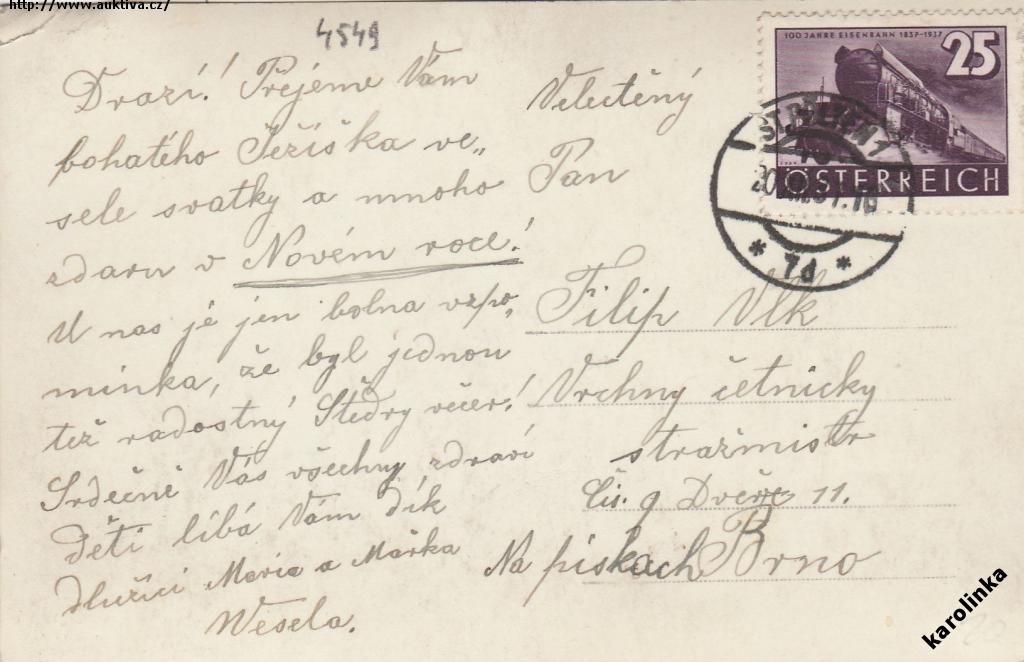 http://www.auktiva.cz/
4549
Drazí! Přejeme Vám
bohatého Ježíška ve„
sele svatky a mnoho
zdaru v Novém roce!
U nas je jen bolna vzpo„
minka, že byl jednou
též radostný Štědry večer!
Srdečně Vás všechny zdraví
děti líbá Vám dík
dlužící Maria a Mařka
Wesela.
100 JAHRE EISENBAHN 1837-1937
25
ÖSTERREICH
ST. PÖLTEN 1
* 7d *
Velectěný
Pan
Filip Vlk
Vrchny četnicky
stražmistr
čis. 9 Dveře 11.
Na piskach Brno
karolinka